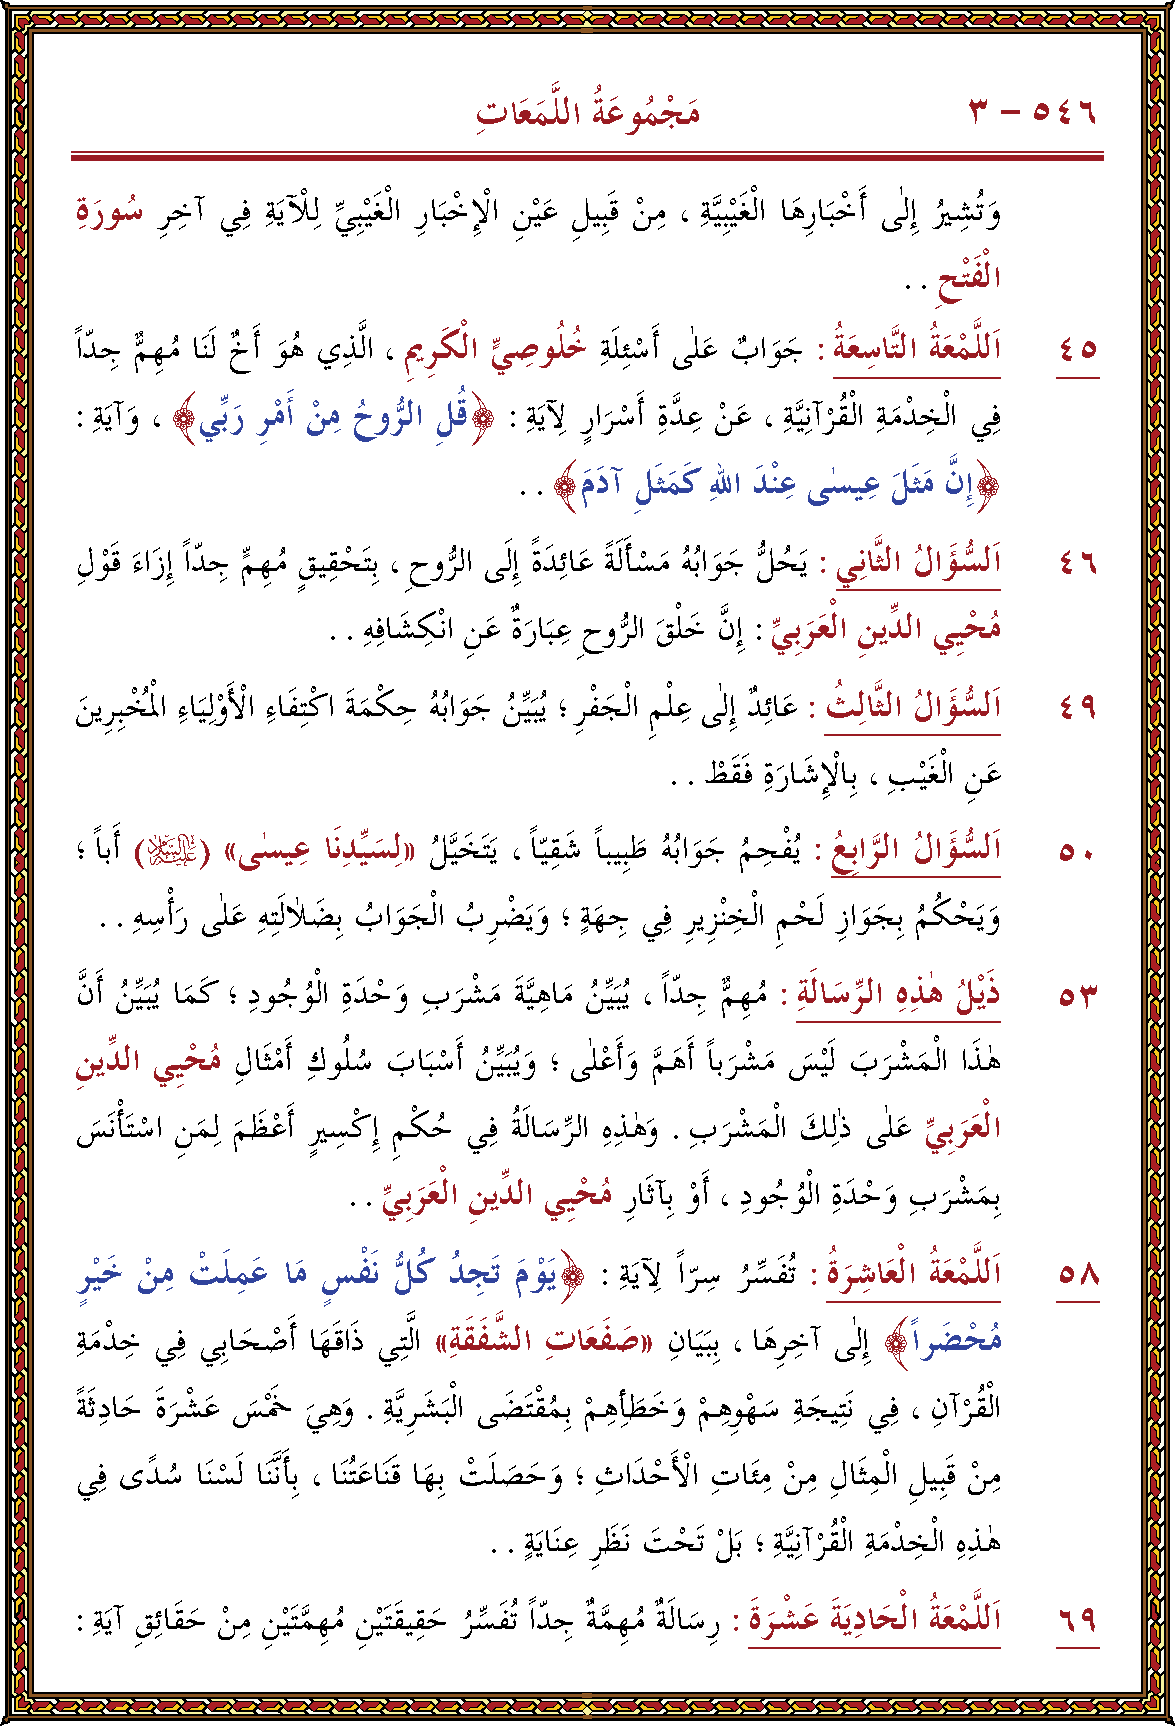 ٥٤٦ – ٣ مَجْمُوعَةُ اللَّمَعَاتِ
وَتُشِيرُ إِلٰى أَخْبَارِهَا الْغَيْبِيَّةِ ، مِنْ قَبِيلِ عَيْنِ الْإِخْبَارِ الْغَيْبِيِّ لِلْآيَةِ فِي آخِرِ سُورَةِ
الْفَتْحِ . .
٤٥ اَللَّمْعَةُ التَّاسِعَةُ : جَوَابٌ عَلٰى أَسْئِلَةِ خُلُوصِيٍّ الْكَرِيمِ ، الَّذِي هُوَ أَخٌ لَنَا مُهِمٌّ جِدّاً
فِي الْخِدْمَةِ الْقُرْآنِيَّةِ ، عَنْ عِدَّةِ أَسْرَارٍ لِآيَةِ : ﴿قُلِ الرُّوحُ مِنْ أَمْرِ رَبِّي﴾ ، وَآيَةِ :
﴿إِنَّ مَثَلَ عِيسٰى عِنْدَ اللهِ كَمَثَلِ آدَمَ﴾ . .
٤٦ اَلسُّؤَالُ الثَّانِي : يَحُلُّ جَوَابُهُ مَسْأَلَةً عَائِدَةً إِلَى الرُّوحِ ، بِتَحْقِيقٍ مُهِمٍّ جِدّاً إِزَاءَ قَوْلِ
مُحْيِي الدِّينِ الْعَرَبِيِّ : إِنَّ خَلْقَ الرُّوحِ عِبَارَةٌ عَنِ انْكِشَافِهِ . .
٤٩ اَلسُّؤَالُ الثَّالِثُ : عَائِدٌ إِلٰى عِلْمِ الْجَفْرِ ؛ يُبَيِّنُ جَوَابُهُ حِكْمَةَ اكْتِفَاءِ الْأَوْلِيَاءِ الْمُخْبِرِينَ
عَنِ الْغَيْبِ ، بِالْإِشَارَةِ فَقَطْ . .
٥٠ اَلسُّؤَالُ الرَّابِعُ : يُفْحِمُ جَوَابُهُ طَبِيباً شَقِيّاً ، يَتَخَيَّلُ «لِسَيِّدِنَا عِيسٰى» (عَلَيْهِ السَّلَامُ) أَباً ؛
وَيَحْكُمُ بِجَوَازِ لَحْمِ الْخِنْزِيرِ فِي جِهَةٍ ؛ وَيَضْرِبُ الْجَوَابُ بِضَلَالَتِهِ عَلٰى رَأْسِهِ . .
٥٣ ذَيْلُ هٰذِهِ الرِّسَالَةِ : مُهِمٌّ جِدّاً ، يُبَيِّنُ مَاهِيَّةَ مَشْرَبِ وَحْدَةِ الْوُجُودِ ؛ كَمَا يُبَيِّنُ أَنَّ
هٰذَا الْمَشْرَبَ لَيْسَ مَشْرَباً أَهَمَّ وَأَعْلٰى ؛ وَيُبَيِّنُ أَسْبَابَ سُلُوكِ أَمْثَالِ مُحْيِي الدِّينِ
الْعَرَبِيِّ عَلٰى ذٰلِكَ الْمَشْرَبِ . وَهٰذِهِ الرِّسَالَةُ فِي حُكْمِ إِكْسِيرٍ أَعْظَمَ لِمَنِ اسْتَأْنَسَ
بِمَشْرَبِ وَحْدَةِ الْوُجُودِ ، أَوْ بِآثَارِ مُحْيِي الدِّينِ الْعَرَبِيِّ . .
٥٨ اَللَّمْعَةُ الْعَاشِرَةُ : تُفَسِّرُ سِرّاً لِآيَةِ : ﴿يَوْمَ تَجِدُ كُلُّ نَفْسٍ مَا عَمِلَتْ مِنْ خَيْرٍ
مُحْضَراً﴾ إِلٰى آخِرِهَا ، بِبَيَانِ «صَفَعَاتِ الشَّفَقَةِ» الَّتِي ذَاقَهَا أَصْحَابِي فِي خِدْمَةِ
الْقُرْآنِ ، فِي نَتِيجَةِ سَهْوِهِمْ وَخَطَأِهِمْ بِمُقْتَضَى الْبَشَرِيَّةِ . وَهِيَ خَمْسَ عَشْرَةَ حَادِثَةً
مِنْ قَبِيلِ الْمِثَالِ مِنْ مِئَاتِ الْأَحْدَاثِ ؛ وَحَصَلَتْ بِهَا قَنَاعَتُنَا ، بِأَنَّنَا لَسْنَا سُدًى فِي
هٰذِهِ الْخِدْمَةِ الْقُرْآنِيَّةِ ؛ بَلْ تَحْتَ نَظَرِ عِنَايَةٍ . .
٦٩ اَللَّمْعَةُ الْحَادِيَةَ عَشْرَةَ : رِسَالَةٌ مُهِمَّةٌ جِدّاً تُفَسِّرُ حَقِيقَتَيْنِ مُهِمَّتَيْنِ مِنْ حَقَائِقِ آيَةِ :